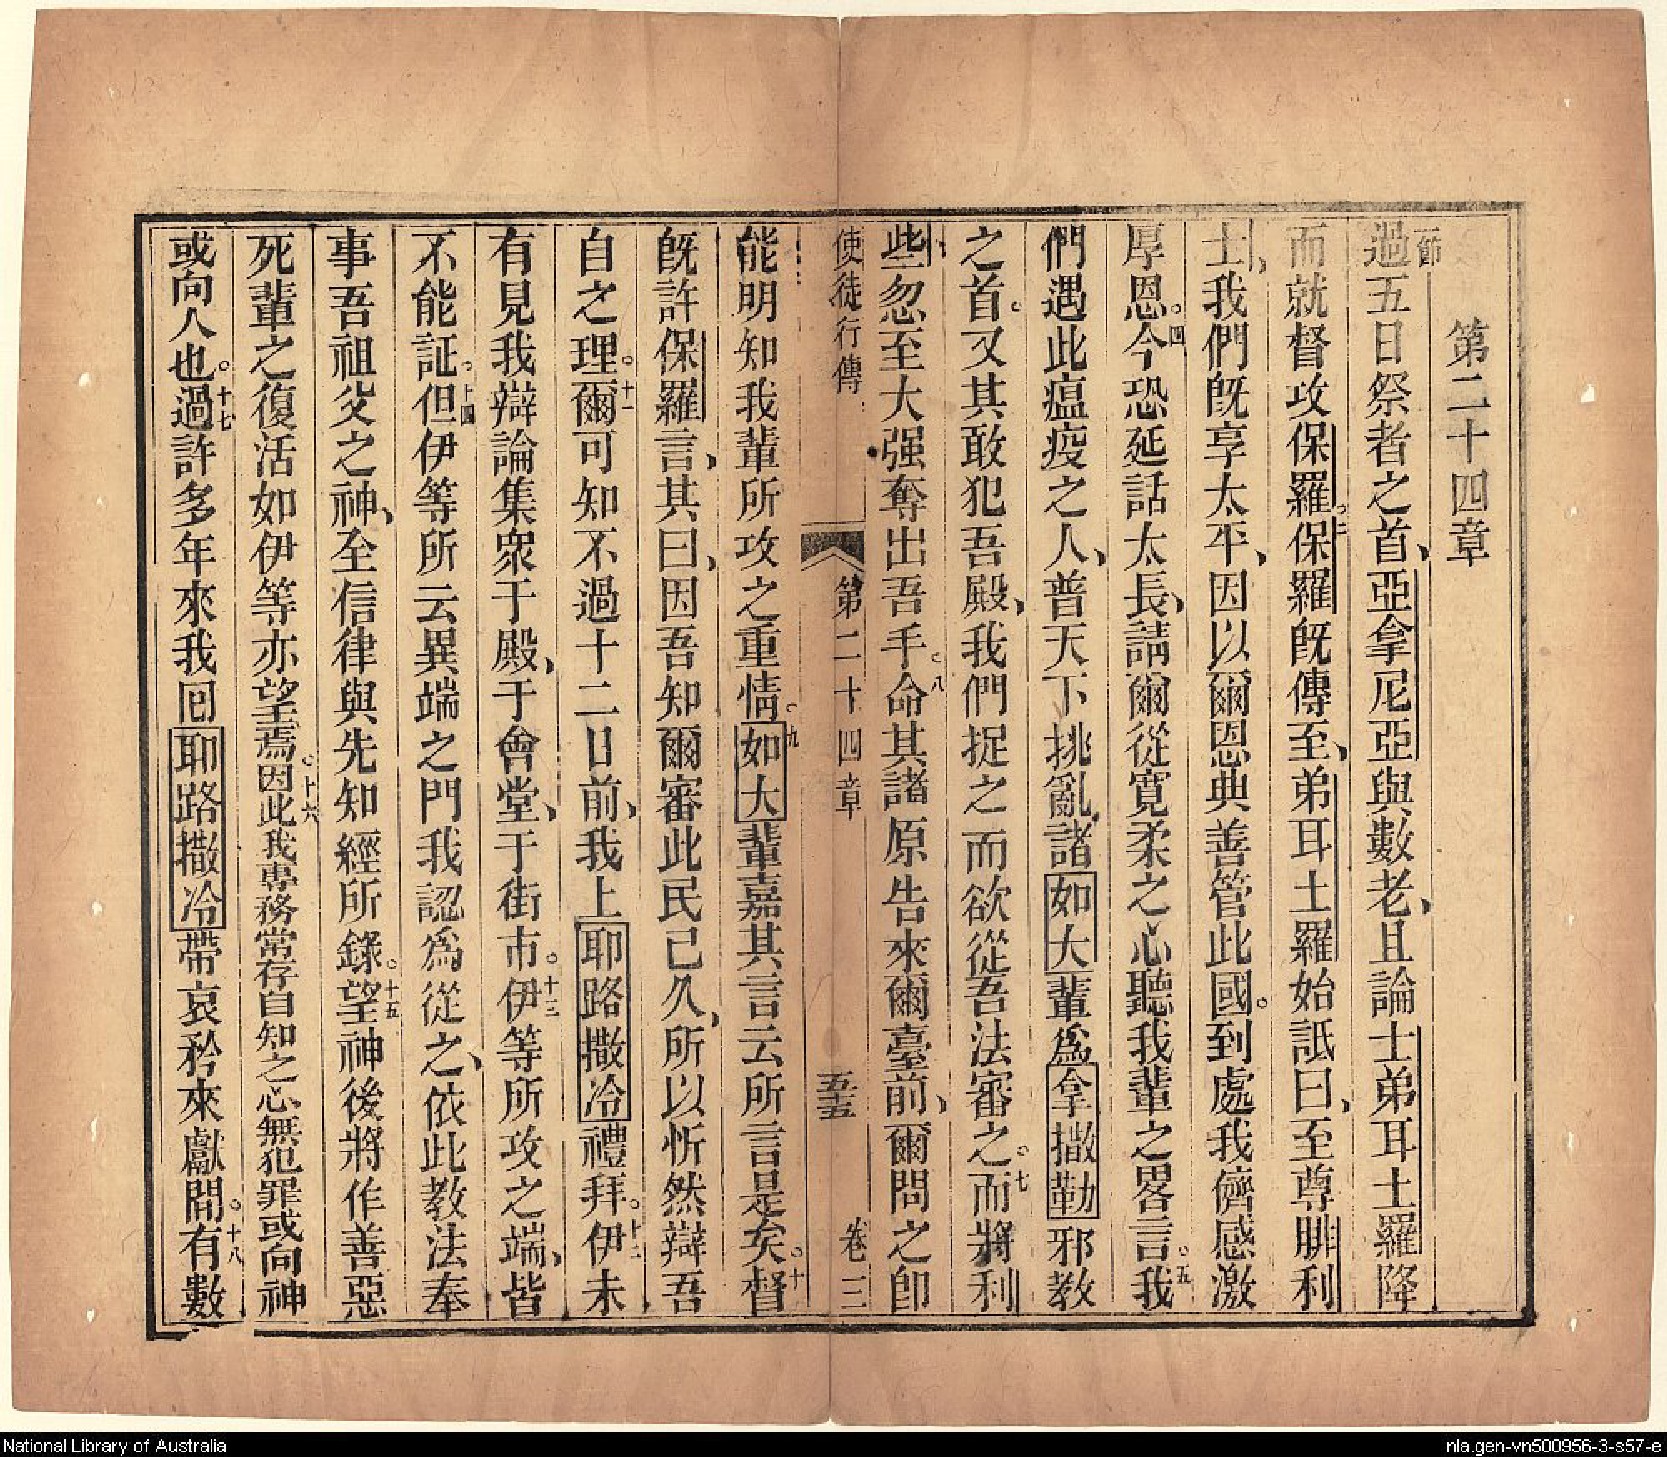 第二十四章
一節過五日祭者之首、亞拿尼亞與數老、且論士弟耳土羅降
而就督攻保羅。二保羅既傳至、弟耳土羅始詆曰、至尊腓利
士、我們既享太平、因以爾恩典善管此國。到處我儕感激
厚恩。四今恐延話太長、請爾從寬柔之心聽我輩之畧言。五我
們遇此瘟疫之人、普天下挑亂諸如大輩為拿撒勒邪教
之首。又其敢犯吾殿、我們捉之而欲從吾法審之。七而將利
些忽至大强奪出吾手。八命其諸原告來爾臺前、爾問之即
使徒行傳 第二十四章 五十五 卷三
能明知我輩所攻之重情。九如大輩嘉其言云所言是矣。十督
既許保羅言、其曰、因吾知爾審此民已久、所以忻然辯吾
自之理。十一爾可知不過十二日前、我上耶路撒冷禮拜。十二伊未
有見我辯論集衆于殿、于會堂、于街市。十三伊等所攻之端、皆
不能証。十四但伊等所云異端之門我認為從之、依此教法奉
事吾祖父之神、至信律與先知經所錄。十五望神後將作善惡
死輩之復活如伊等亦望焉。十六因此我專務常存自知之心、無犯罪或向神
或向人也。十七過許多年來我回耶路撒冷帶哀矜來獻。十八間有數
National Library of Australia
nla.gen-vn500956-3-s57-e